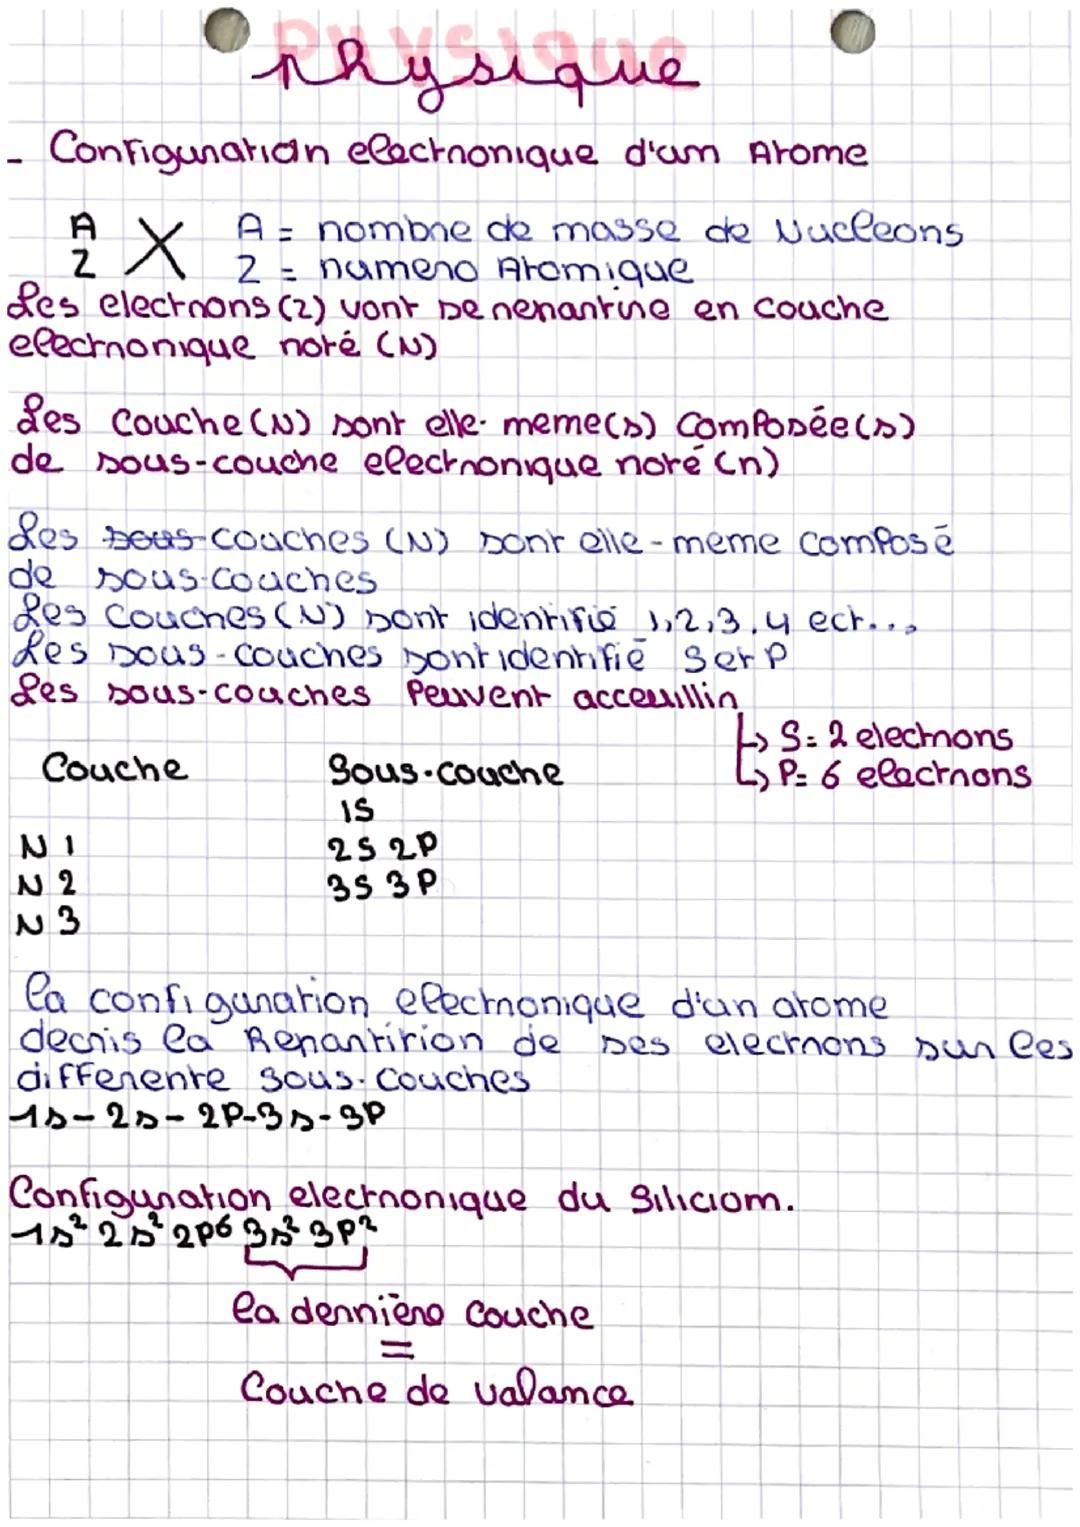 Physique
- Configuration electronique d'um Atome
A
Z X
A = nombre de masse de Nucleons
Z = numero Atomique
Les electrons (Z) vont se repartire en couche
electronique noté (N)
Les Couche (N) sont elle-meme(s) Composée(s)
de sous-couche electronique noté (n)
Les sous-couches (N) sont elle-meme composé
de sous-couches
Les Couches (N) sont identifié 1,2,3,4 ect...
Les sous-couches sont identifié S et P
Les sous-couches Peuvent acceuillir
↳ S = 2 electrons
↳ P = 6 electrons
Couche Sous-couche
1S
N 1 2S 2P
N 2 3S 3P
N 3
la configuration electronique d'un atome
decris la Repartition de ses electrons sur les
differente sous-couches
1s - 2s - 2P - 3s - 3P
Configuration electronique du Siliciom.
1s² 2s² 2p⁶ 3s² 3p²
la dernnière Couche
=
Couche de valance